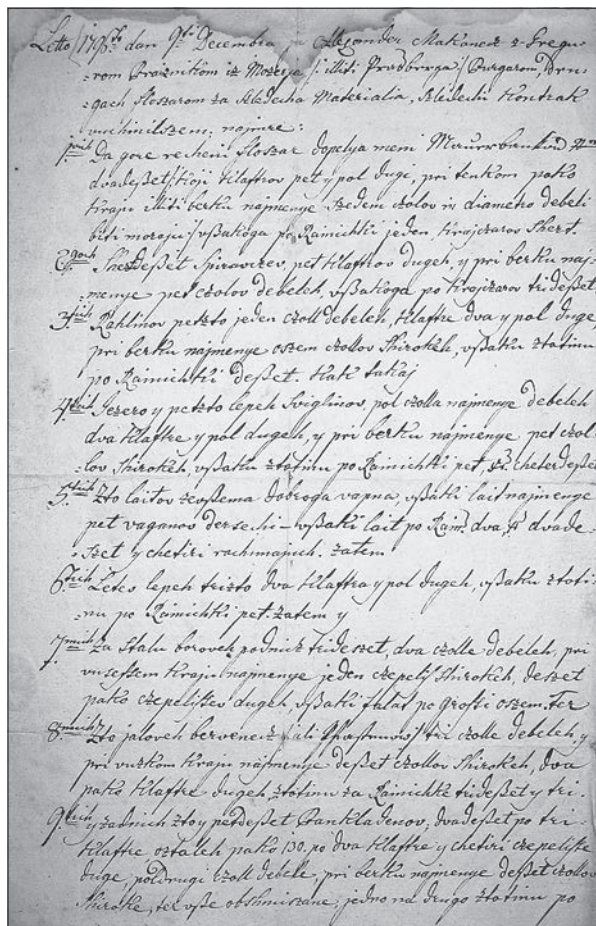 Letto 1798 dan 9ti Decembra ja Alexander Makanecz z-Gregu-
rom Praznikom iz Mozerja /:illiti Presberga:/ Purgarom, Dru-
gach Sloszarom za Szledecha Materialia, szledechi Kontrak
vuchinilszem, najmre:
1.vich Da gore recheni Sloszar dopelya meni
dvadeßet /:koji klaftrov pet y pol dugi, pri tenkom pako
kraju illiti berku najmenye szedem czolov in diametro debeli
biti moraju:/ vßakoga po Rainichki jeden, krajczarov Shezt.
2.goch Shezdeßet Spirovczev, pet klaftrov dugeh, y pri berku naj-
=menye pet czolov debeleh, vßakoga po krajczarov trideßet
3.tich Rahlinov petzto jeden czoll debeleh, klaftre dva y pol duge,
pri berku najmenye oszem czollov Shirokeh, vßaku ztotinu
po Rainichki deßet. Kak takaj
4.tich Jezero y petzto lepeh Sviglinov, pol czolla najmenye debeleh
dva klaftre y pol dugeh, y pri berku najmenye pet czol-
=lov Shirokeh, vßaku ztotinu po Rainichki pet, cheterdeßet
5.tich Zto laitov zevßema dobroga vapna, vßaki lait najmenye
pet vaganov dersechi – vßaki lait po Rain. dva, dvade-
=szet y chetiri rachunajuch. zatem
6.tich Letev lepeh trizto dva klaftra y pol dugeh, vßaku ztoti-
=nu po Rainichki pet. zatem y
7.mich Za Stalu boroveh podnicz trideszet, dva czolle debeleh, pri
vusessem kraju najmenye jeden czepelis Shirokeh, deszet
pako czepelissev dugeh, vßaki falat po grossi oszem. Ter
8.mich Zto jaloveh bervenecz /:ali:/ tri czolle debeleh, y
pri vuzkom kraju najmenye deßet czollov Shirokeh, dva
pako klaftre dugeh, ztotinu za Rainichke trideßet y tri.
9.tich y zadnich zto y petdeßet Pankladenov, dvadeßet po tri
klaftre, oztaleh pako 130. po dva klaftre y chetiri czepelisse
duge, poldrugi czoll debele, pri berku najmenye deßet czollov
Shiroke, ter vße obshmiszane, jedno na drugo ztotinu po